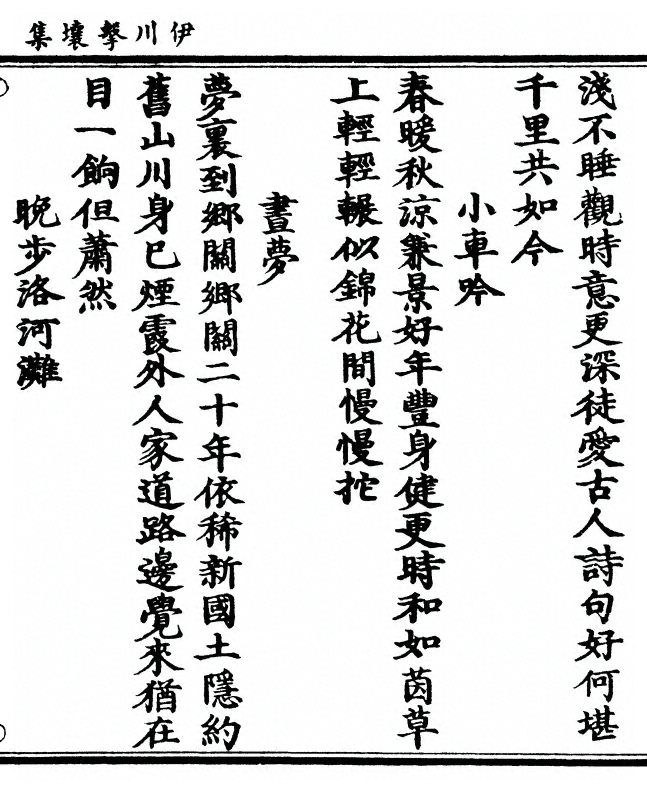 伊川擊壤集
淺不睡觀時意更深徒愛古人詩句好何堪
千里共如今
小車吟
春暖秋涼兼景好年豐身健更時和如茵草
上輕輕輾似錦花間慢慢拕
晝夢
夢裏到鄉關鄉關二十年依稀新國土隱約
舊山川身已煙霞外人家道路邊覺來猶在
目一餉但蕭然
晚步洛河灘